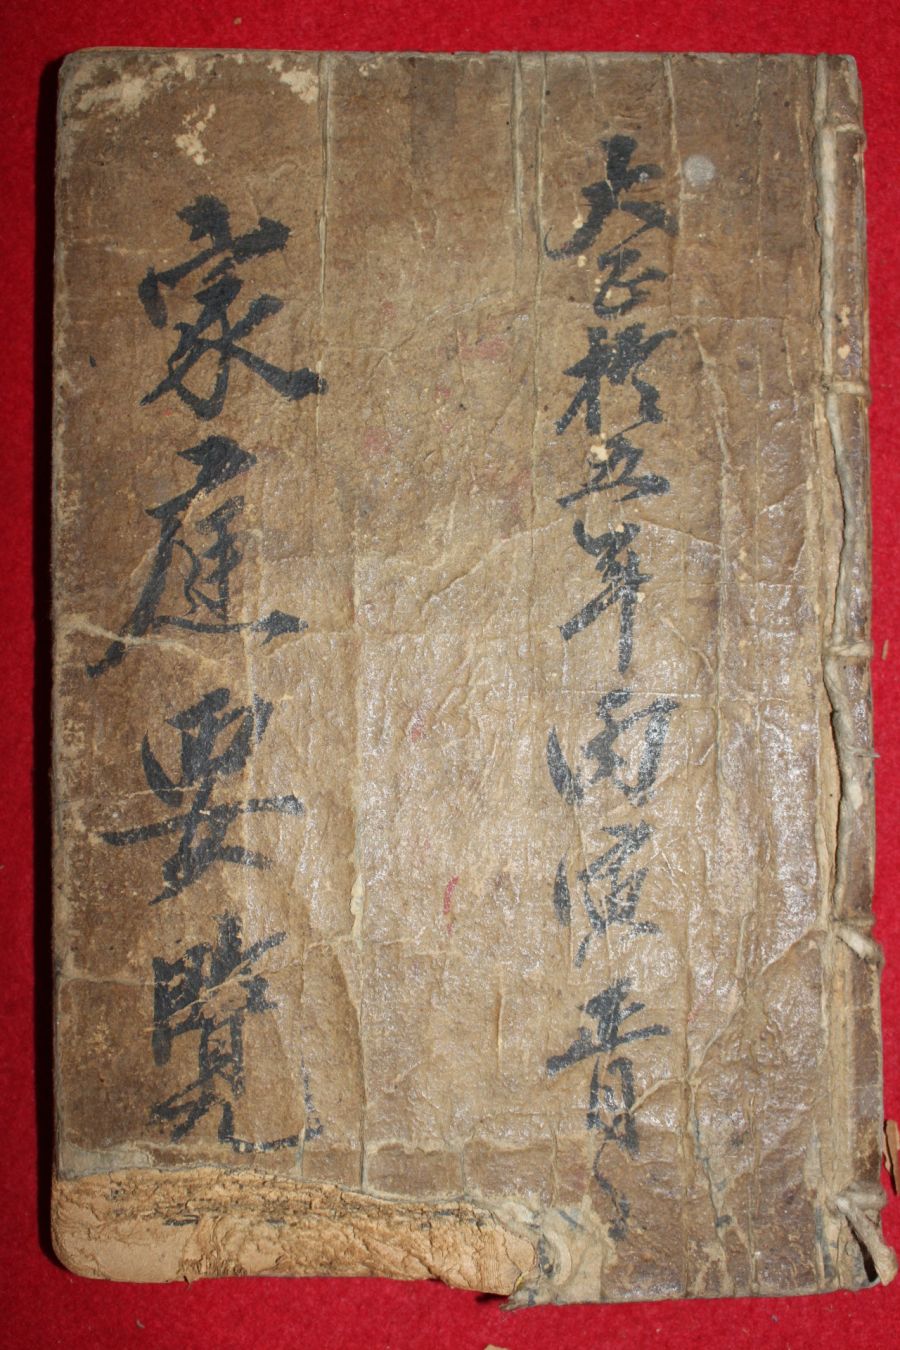 大正拾五年丙寅
家庭要覽